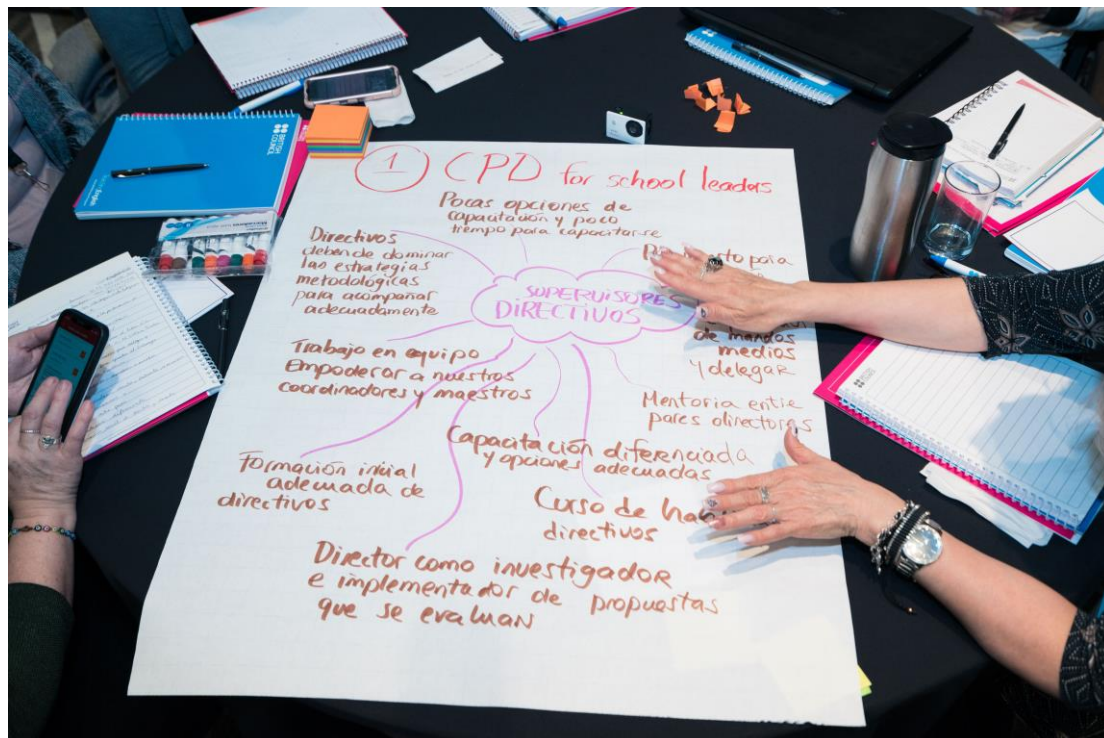 1 CPD for school leaders
Pocas opciones de
capacitación y poco
tiempo para capacitarse
Directivos
deben de dominar
las estrategias
metodológicas
para acompañar
adecuadamente
para
SUPERVISORES
DIRECTIVOS
de mandos
medios
y delegar
Trabajo en equipo
Empoderar a nuestros
coordinadores y maestros
Mentoria entre
pares directores
Capacitación diferenciada
y opciones adecuadas
Formación inicial
adecuada de
directivos
Curso de
directivos
Director como investigador
e implementador de propuestas
que se evaluan
BRITISH
COUNCIL